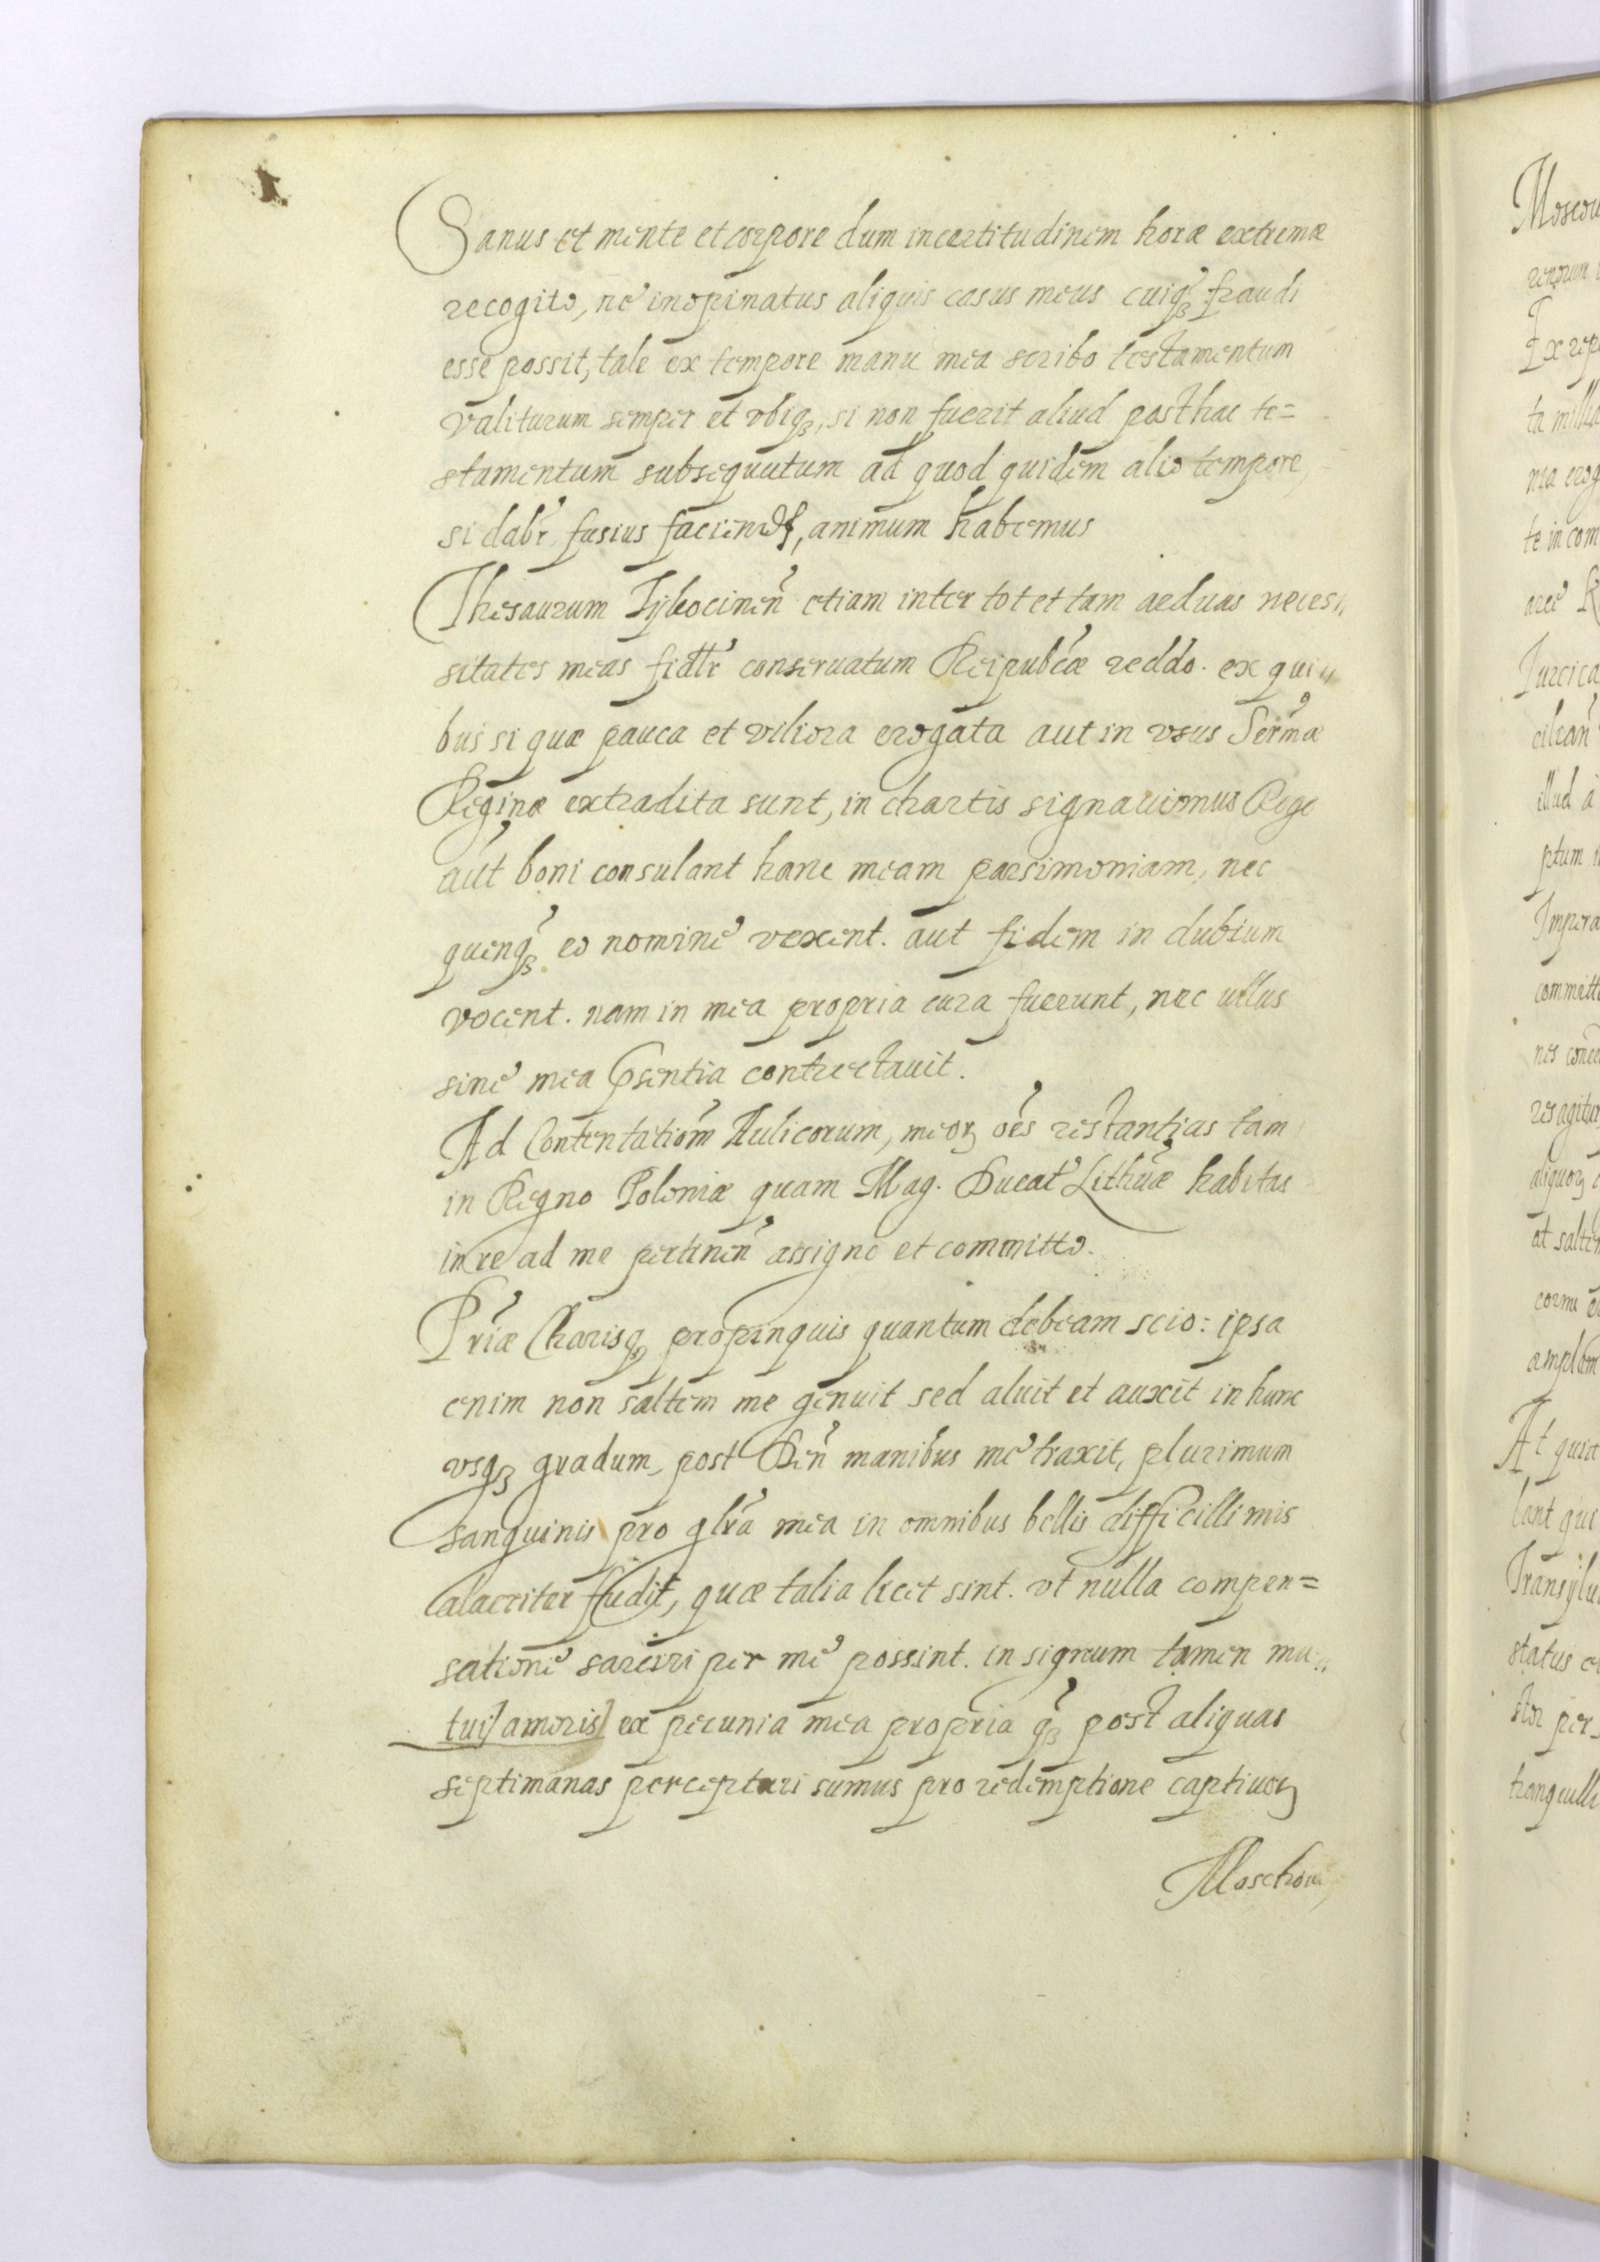 Sanus et mente et corpore dum incertitudinem horæ extremæ
recogito, ne inopinatus aliquis casus meus cuiqꝫ fraudi
esse possit, tale ex tempore manu mea scribo testamentum
valiturum semper et vbiqꝫ, si non fuerit aliud posthac te=
stamentum subsequutum ad quod quidem alio tempore,
si dabr̃ fusius faciend, animum habemus
Thesaurum Tykocineñ etiam inter tot et tam arduas neces,,
sitates meas fidlr̃ conseruatum Reipubcæ reddo. ex qui,,
bus si quæ pauca et viliora erogata aut in vsus Sermæ
Reginæ extradita sunt, in chartis signauimus Rogo
aut boni consulant hanc meam parsimoniam, nec
quenqꝫ eo nomine vexent. aut fidem in dubium
vocent. nam in mea propria cura fuerunt, nec ullus
sine mea p̃sentia contrectauit.
Ad Contentatiom̃ Aulicorum, meoꝝ oẽs restantias tam
in Regno Poloniæ quam Mag. Ducat Lithuæ habitas
in re ad me pertineñ assigno et committo.
Priæ Charisqꝫ propinquis quantum debeam scio: ipsa
enim non saltem me genuit sed aluit et auxit in hunc
vsqꝫ gradum, post Deñ manibus me traxit, plurimum
sanguinis pro glr̃a mea in omnibus bellis difficillimis
alacriter fudit, quæ talia licet sint. vt nulla compen=
satione sarciri per me possint. in signum tamen mu,,
tui amoris ex pecunia mea propria qꝫ post aliquas
septimanas percepturi sumus pro redemptione captiuoꝝ
Moschou
Moscou
Ex rep
ta milla
te in com
Turcica
illud a
ptum
Impera
committ
aliquoꝝ
at salte
At quia
Transylu
status
stor per
tranquilli